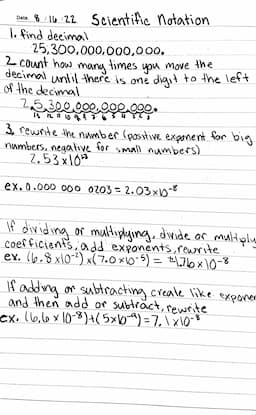 Date 8/16/22 Scientific Notation
1. find decimal
25,300,000,000,000.
2. count how many times you move the
decimal until there is one digit to the left
of the decimal
2,5,300,000,000,000.
13 12 11 10 9 8 7 6 5 4 3 2 1
3. rewrite the number (positive exponent for big
numbers, negative for small numbers)
2.53x10¹³
ex. 0.000 000 0203 = 2.03x10⁻⁸
If dividing or multiplying, divide or multiply
coefficients, add exponents, rewrite
ex. (6.8 x10⁻²) x (7.0 x10⁻⁵) = 4.76 x 10⁻⁸
If adding or subtracting create like exponen
and then add or subtract, rewrite
ex. (6.6 x 10⁻⁸)+(5x10⁻⁹)=7.1 x10⁻⁸